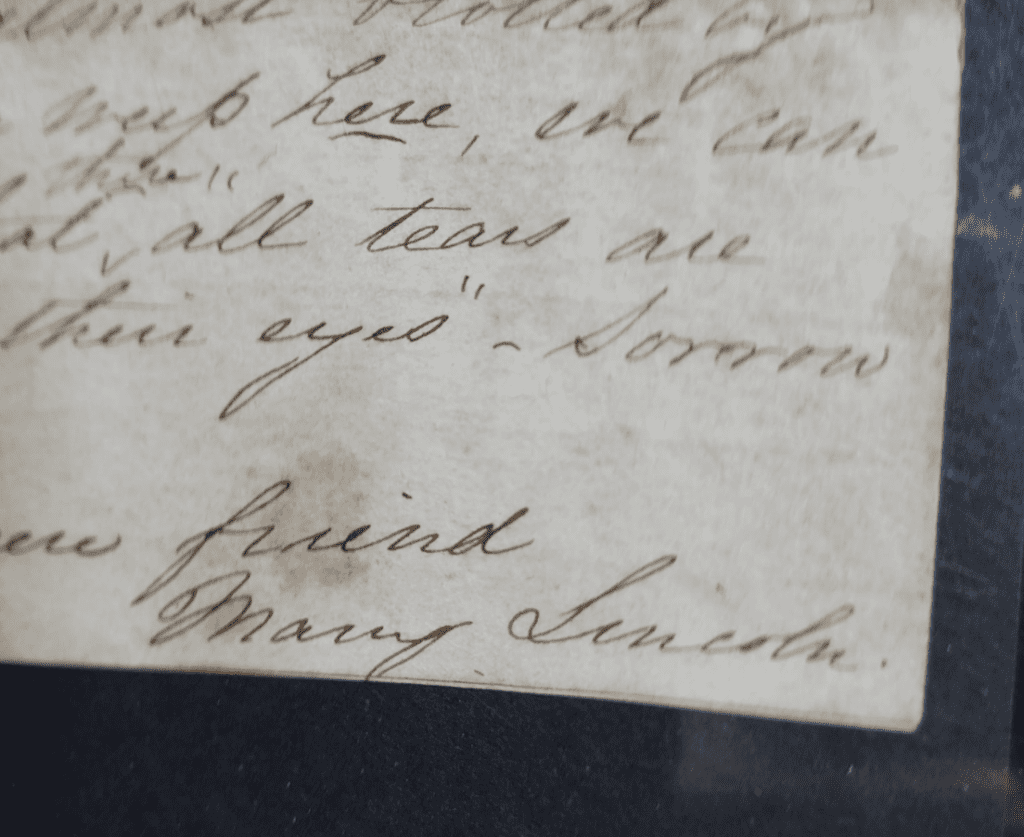 almost blotted by
weep here, we can
there"
all tears are
their eyes" - Sorrow
friend
Mary Lincoln.